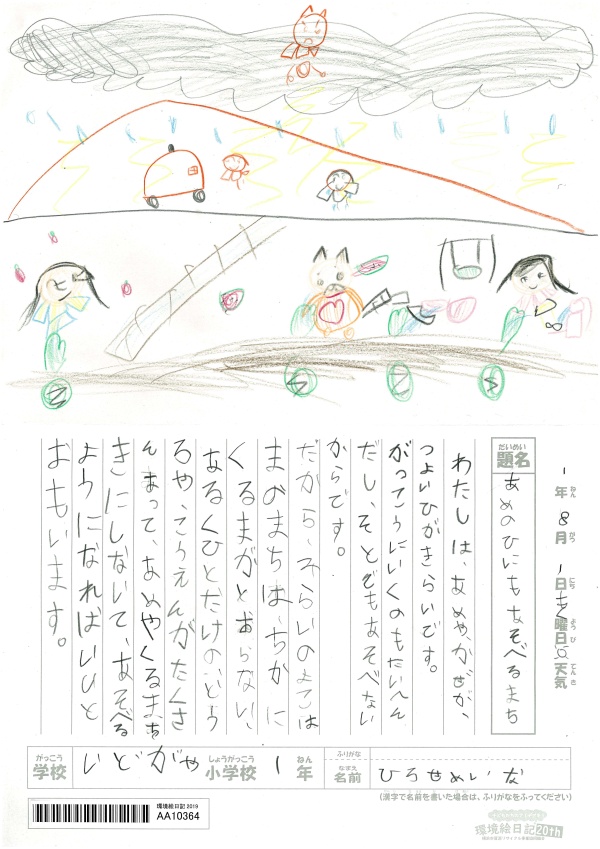 1年ねん 8月がつ 1日にち もく曜日ようび 天気てんき
題名だいめい あめのひにもあそべるまち
わたしは、あめやかぜが、
つよいひがきらいです。
がっこうにいくのもたいへん
だし、そとでもあそべない
からです。
だから、みらいのよこは
まのまちは、ちかに
くるまがとおらない、
あるくひとだけのどう
ろや、こうえんがたくさ
んあって、あめやくるまを
きにしないで、あそべる
ようになればいいと
おもいます。
学校がっこう いどがや 小学校しょうがっこう 1年ねん
ふりがな
名前なまえ ひろせめいな
(漢字で名前を書いた場合は、ふりがなをふってください)
環境絵日記 2019
AA10364
環境絵日記20th